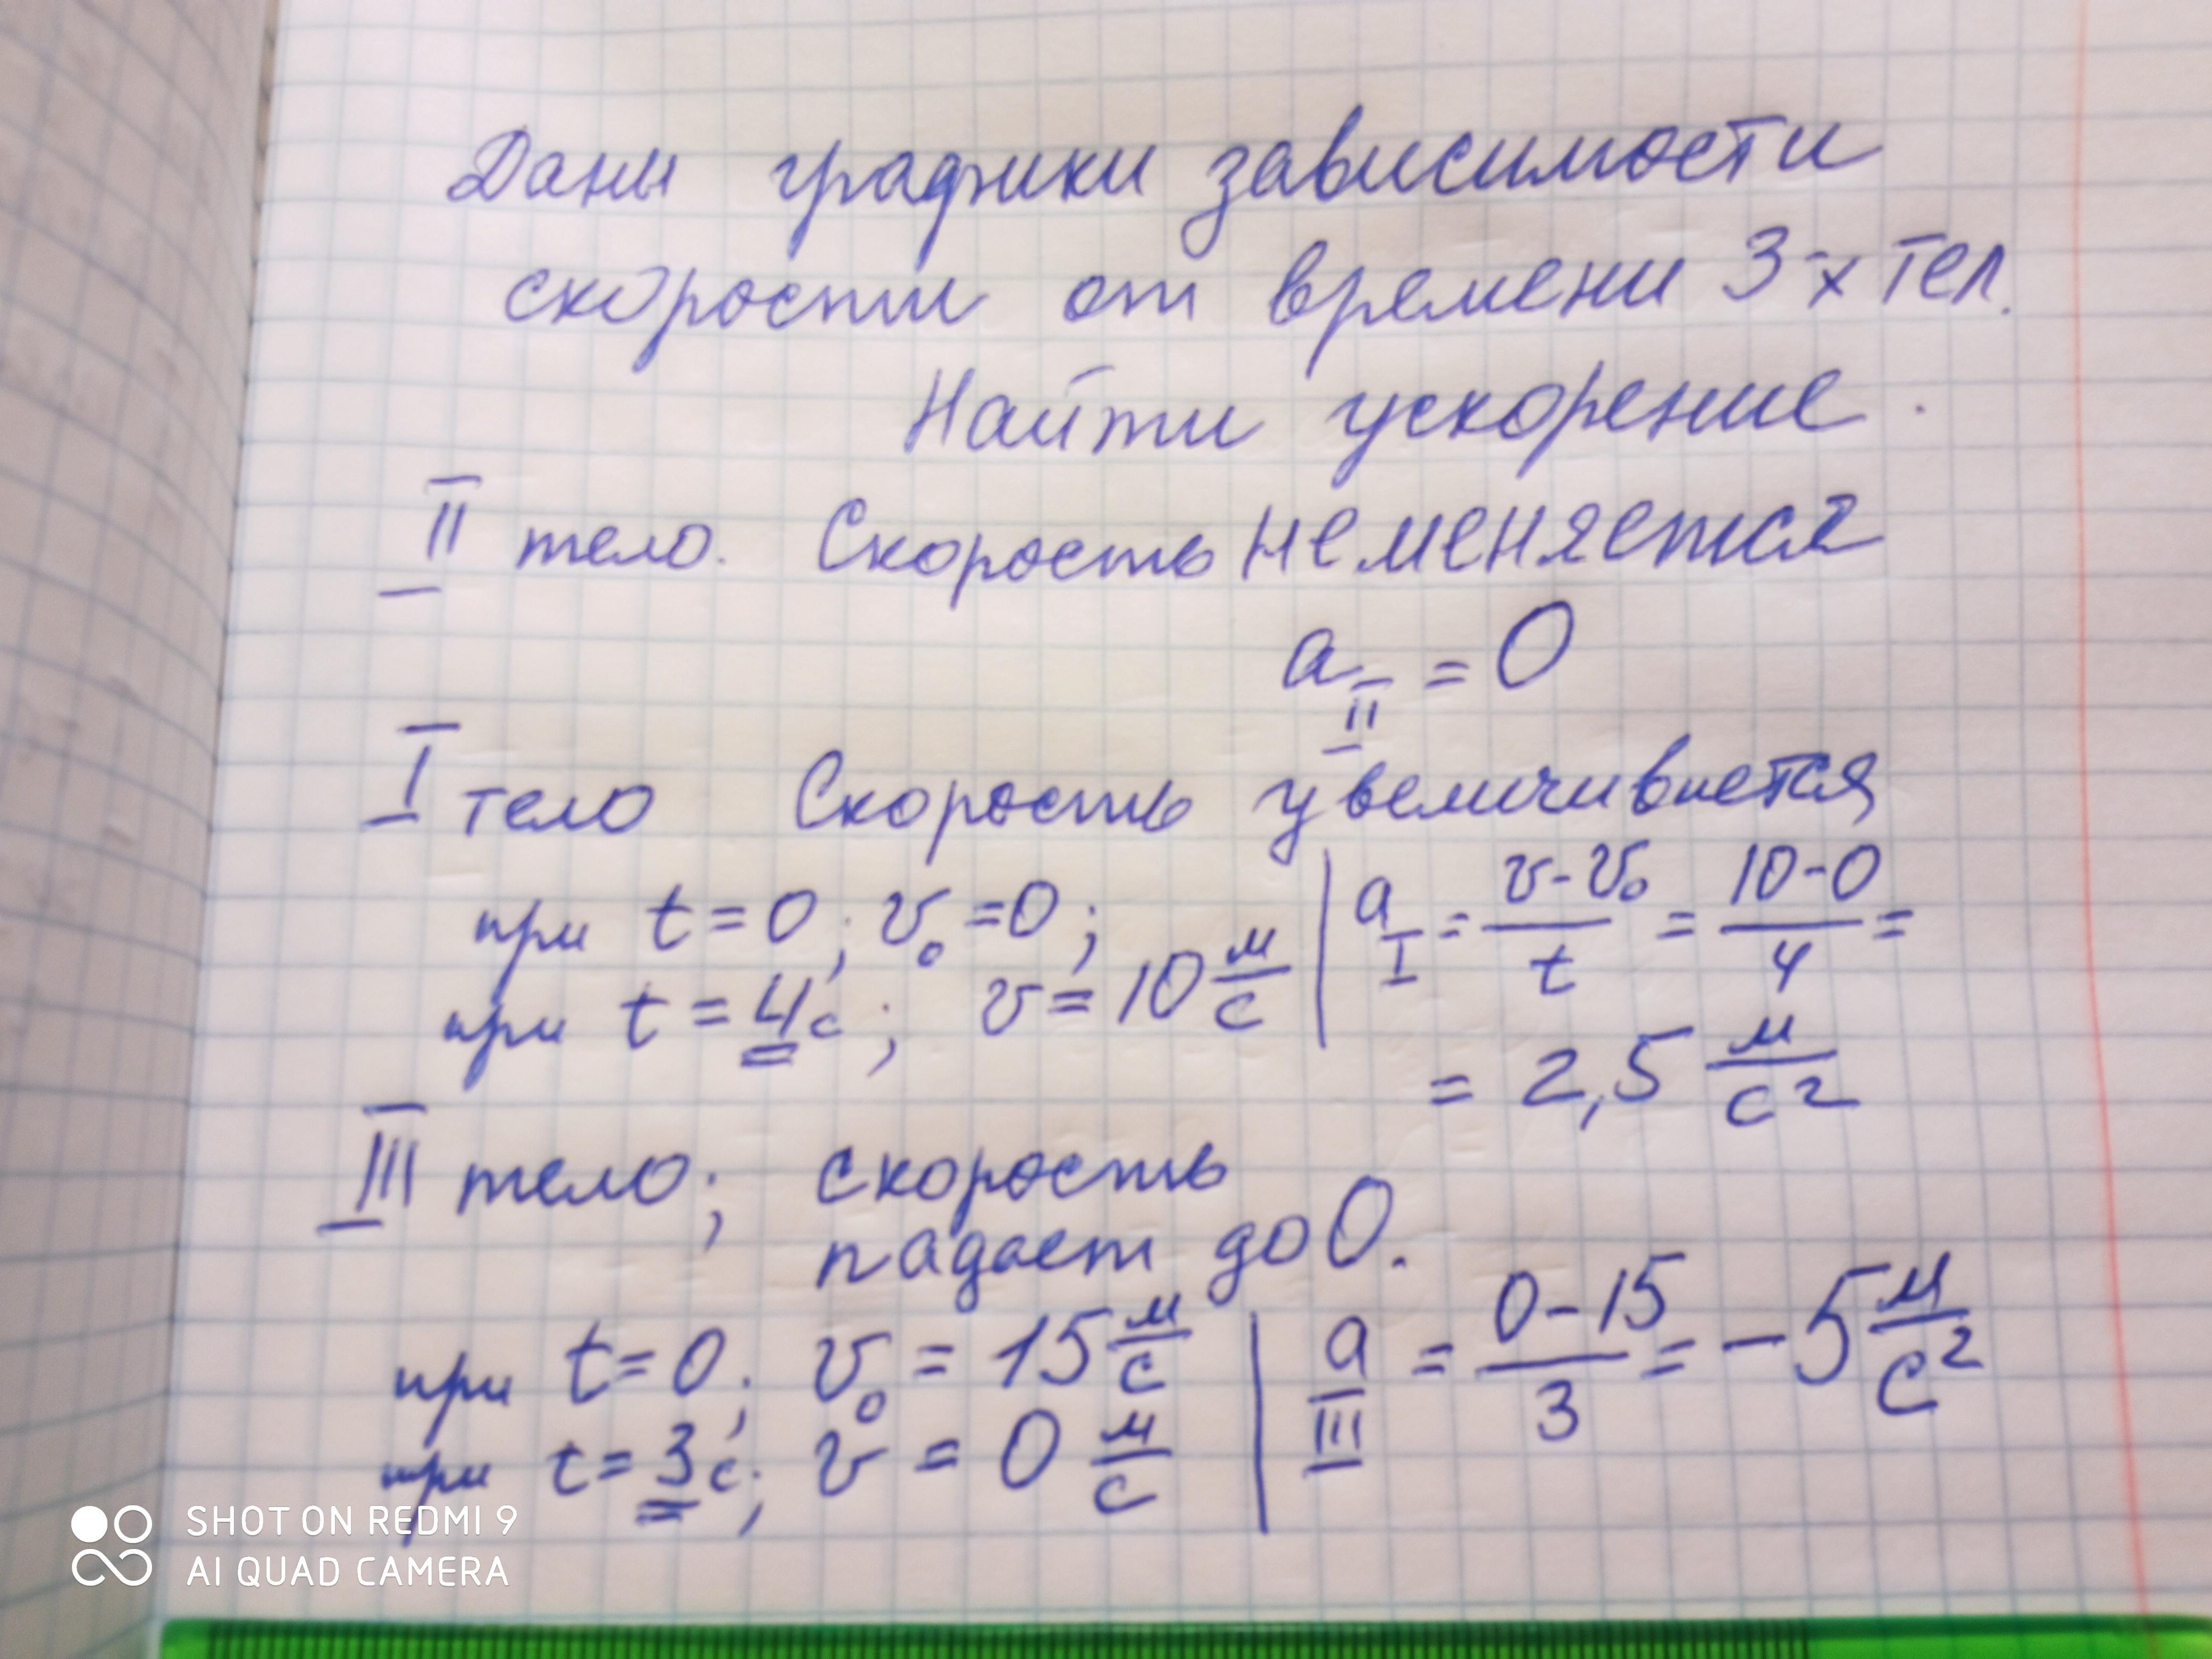 Даны графики зависимости
скорости от времени 3-х тел.
Найти ускорение.
II тело. Скорость не меняется
a_II = 0
I тело Скорость увеличивается
при t = 0; v₀ = 0;
при t = 4с; v = 10 м/с
a_I = (v - v₀)/t = (10 - 0)/4 =
= 2,5 м/с²
III тело; скорость
падает до 0.
при t = 0; v₀ = 15 м/с
при t = 3с; v = 0 м/с
a_III = (0 - 15)/3 = -5 м/с²
SHOT ON REDMI 9
AI QUAD CAMERA